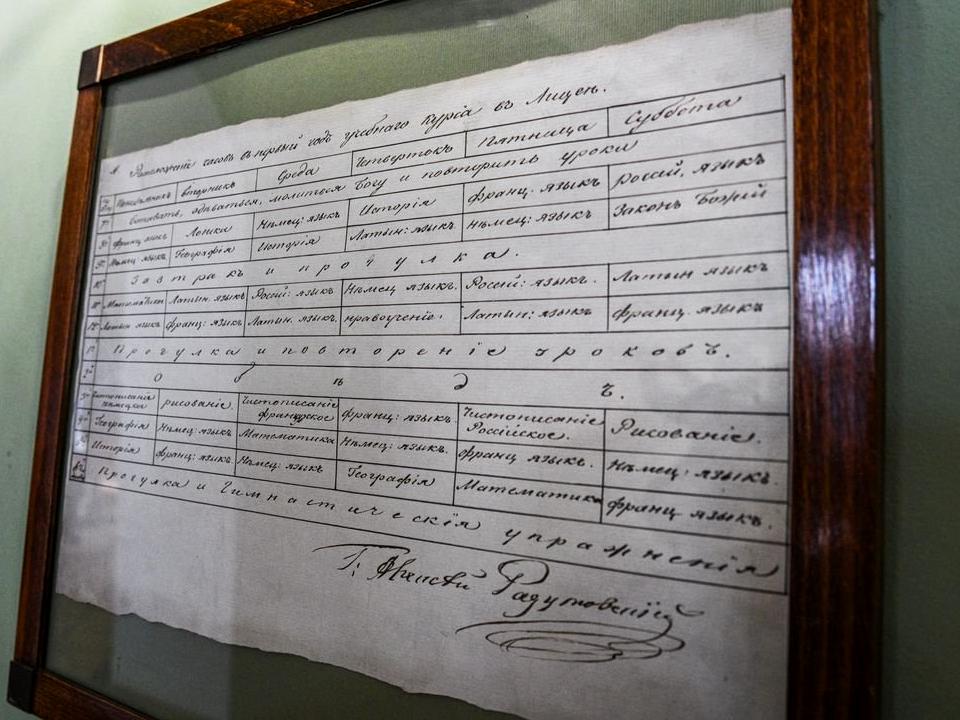 Расположеніе часовъ въ первый годъ учебнаго курса въ Лицеи.
Понедѣльникъ вторникъ Среда Четвертокъ Пятница Суббота
Вставать, одѣваться, молиться Богу и повторить уроки
франц. языкъ Логика Нѣмец: языкъ Исторія франц. языкъ Россій. языкъ
Нѣмец. языкъ Географія Исторія Латин: языкъ Нѣмец: языкъ Законъ Божій
Завтракъ и прогулка.
Математика Латин. языкъ Россій: языкъ Нѣмец языкъ. Россій: языкъ Латин языкъ
Латин языкъ франц: языкъ Латин. языкъ нравоученіе. Латин: языкъ франц. языкъ
Прогулка и повтореніе уроковъ.
Обѣдъ.
Чистописаніе нѣмецкое рисованіе. Чистописаніе французское франц: языкъ Чистописаніе Россійское. Рисованіе.
Географія Нѣмец: языкъ Математика Нѣмец: языкъ. франц языкъ. Нѣмец: языкъ.
Исторія франц: языкъ. Нѣмец: языкъ Географія Математика франц языкъ.
Прогулка и Гимнастическія упражненія
Г: Алексѣй Разумовскій